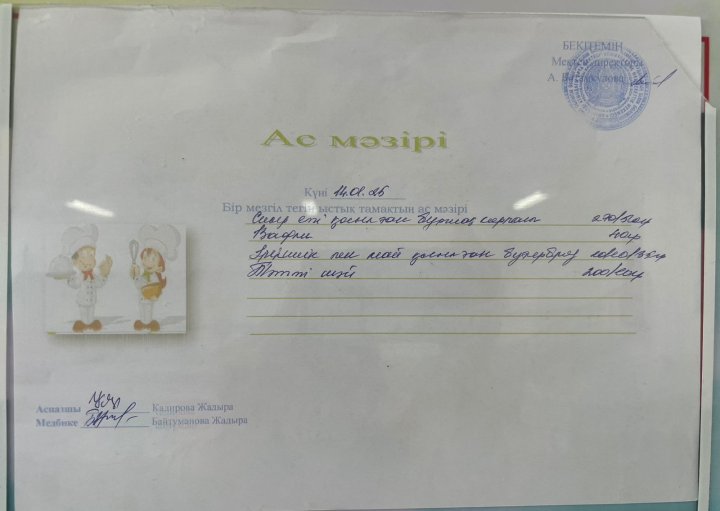 БЕКІТЕМІН
Мектеп директоры
А.
Ас мәзірі
Күні 14.01.25
Бір мезгіл тегін ыстық тамақтың ас мәзірі
Сиыр еті қосылған бұршақ сорпасы 270/50гр
Вафли 40гр
Ірімшік пен май қосылған бутерброд
Тәтті шәй 200/20гр
Аспазшы Кадирова Жадыра
Медбике Байтуманова Жадыра